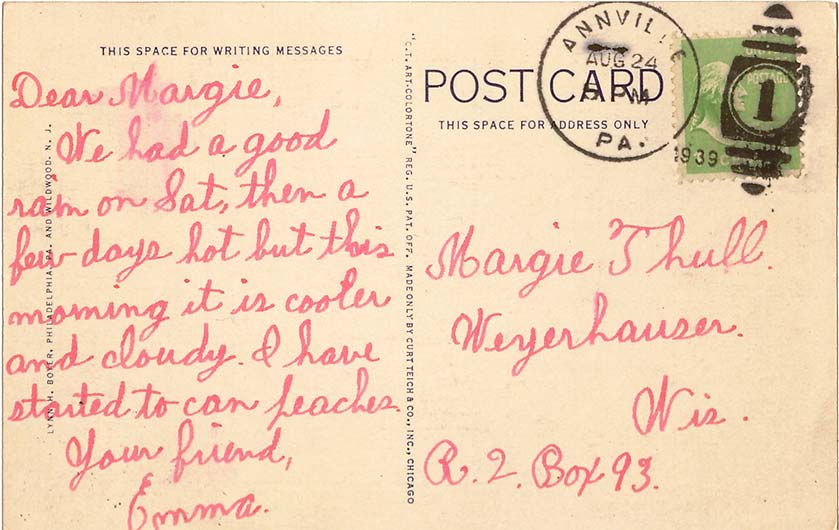 THIS SPACE FOR WRITING MESSAGES
Dear Margie,
We had a good
rain on Sat, then a
few days hot but this
morning it is cooler
and cloudy. I have
started to can peaches.
Your friend,
Emma.
LYNN H. BOYER, PHILADELPHIA, PA. AND WILDWOOD, N. J.
"C.T. ART-COLORTONE" REG. U.S. PAT. OFF. MADE ONLY BY CURT TEICH & CO., INC., CHICAGO
POST CARD
THIS SPACE FOR ADDRESS ONLY
ANNVILLE
AUG 24
PM
PA.
1939
POSTAGE
1
Margie Thull.
Weyerhauser.
Wis.
R. 2. Box 93.